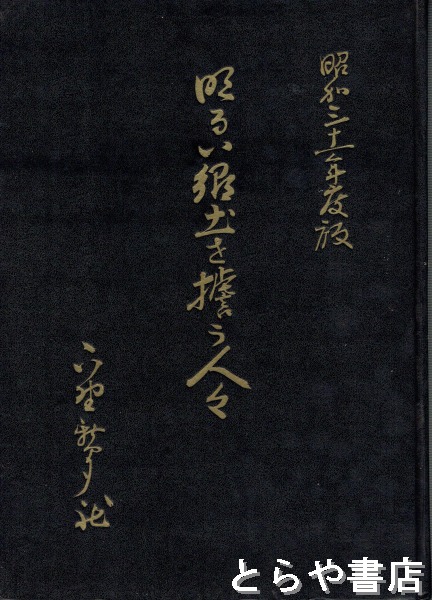 昭和三十一年度版
明るい郷土を擔う人々
下野新聞社
とらや書店